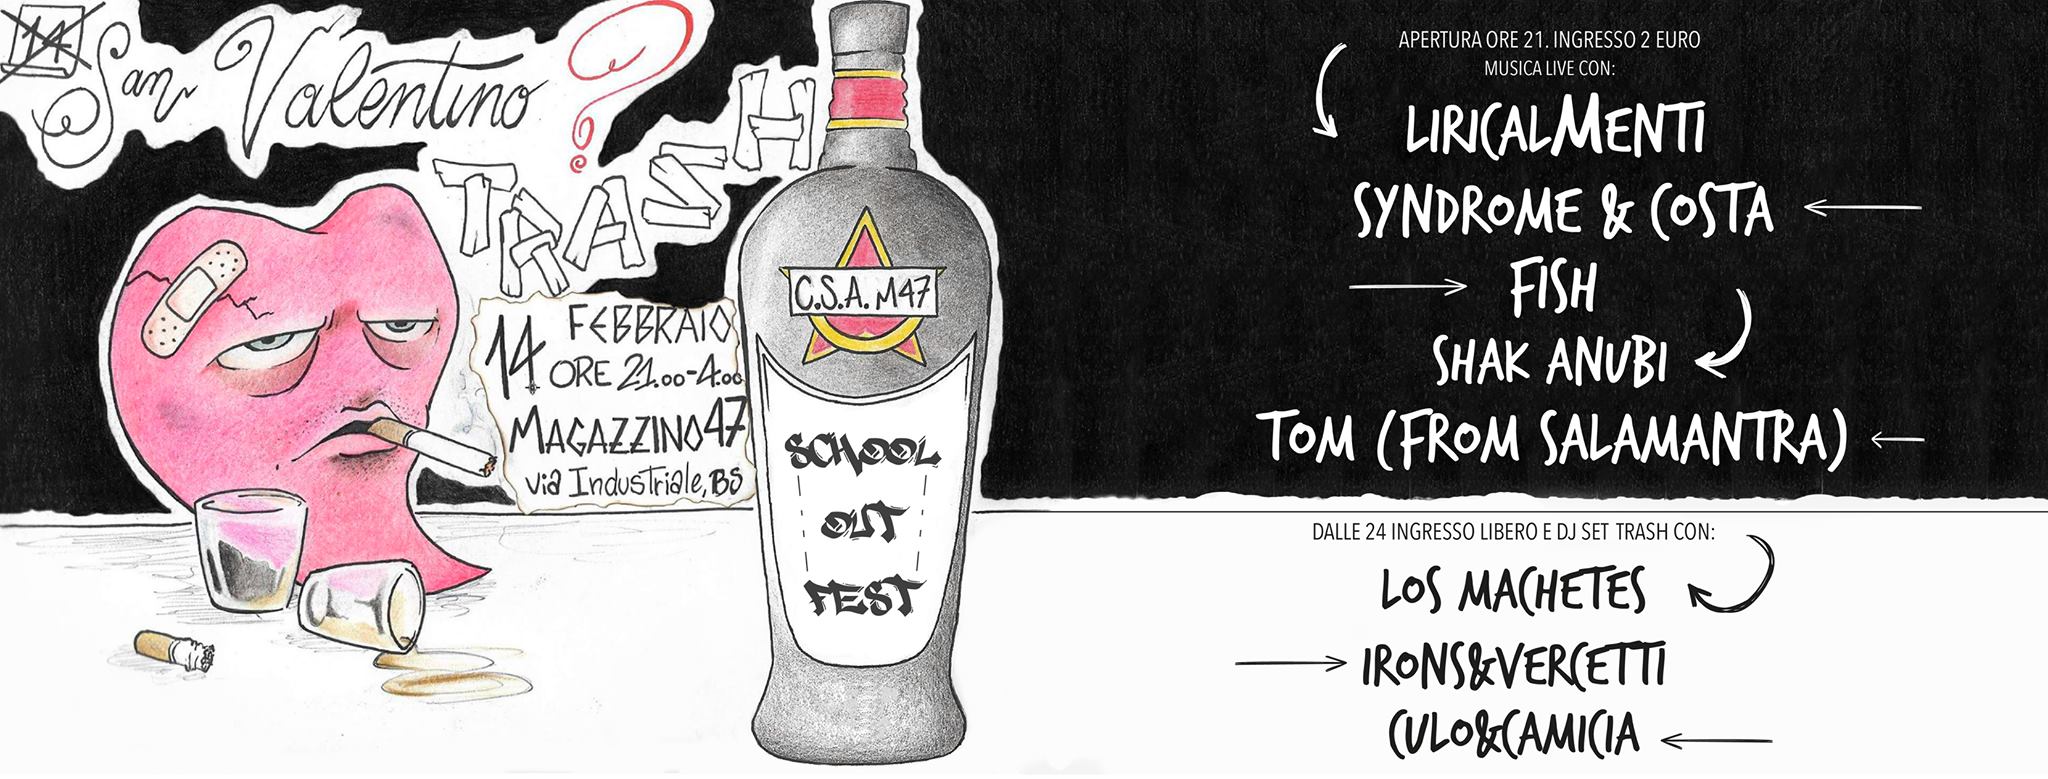 14
San Valentino ?
TRASH
14 FEBBRAIO
ORE 21.00-4.00
MAGAZZINO47
via Industriale, BS
C.S.A. M47
SCHOOL
OUT
FEST
APERTURA ORE 21. INGRESSO 2 EURO
MUSICA LIVE CON:
LIRICALMENTI
SYNDROME & COSTA
FISH
SHAK ANUBI
TOM (FROM SALAMANTRA)
DALLE 24 INGRESSO LIBERO E DJ SET TRASH CON:
LOS MACHETES
IRONS&VERCETTI
CULO&CAMICIA